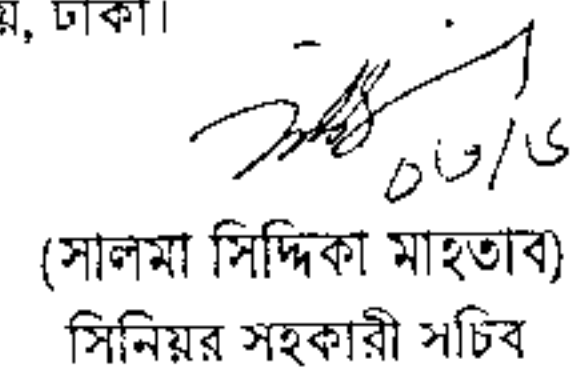 য়, ঢাকা।
০৩/৬
(সালমা সিদ্দিকা মাহতাব)
সিনিয়র সহকারী সচিব